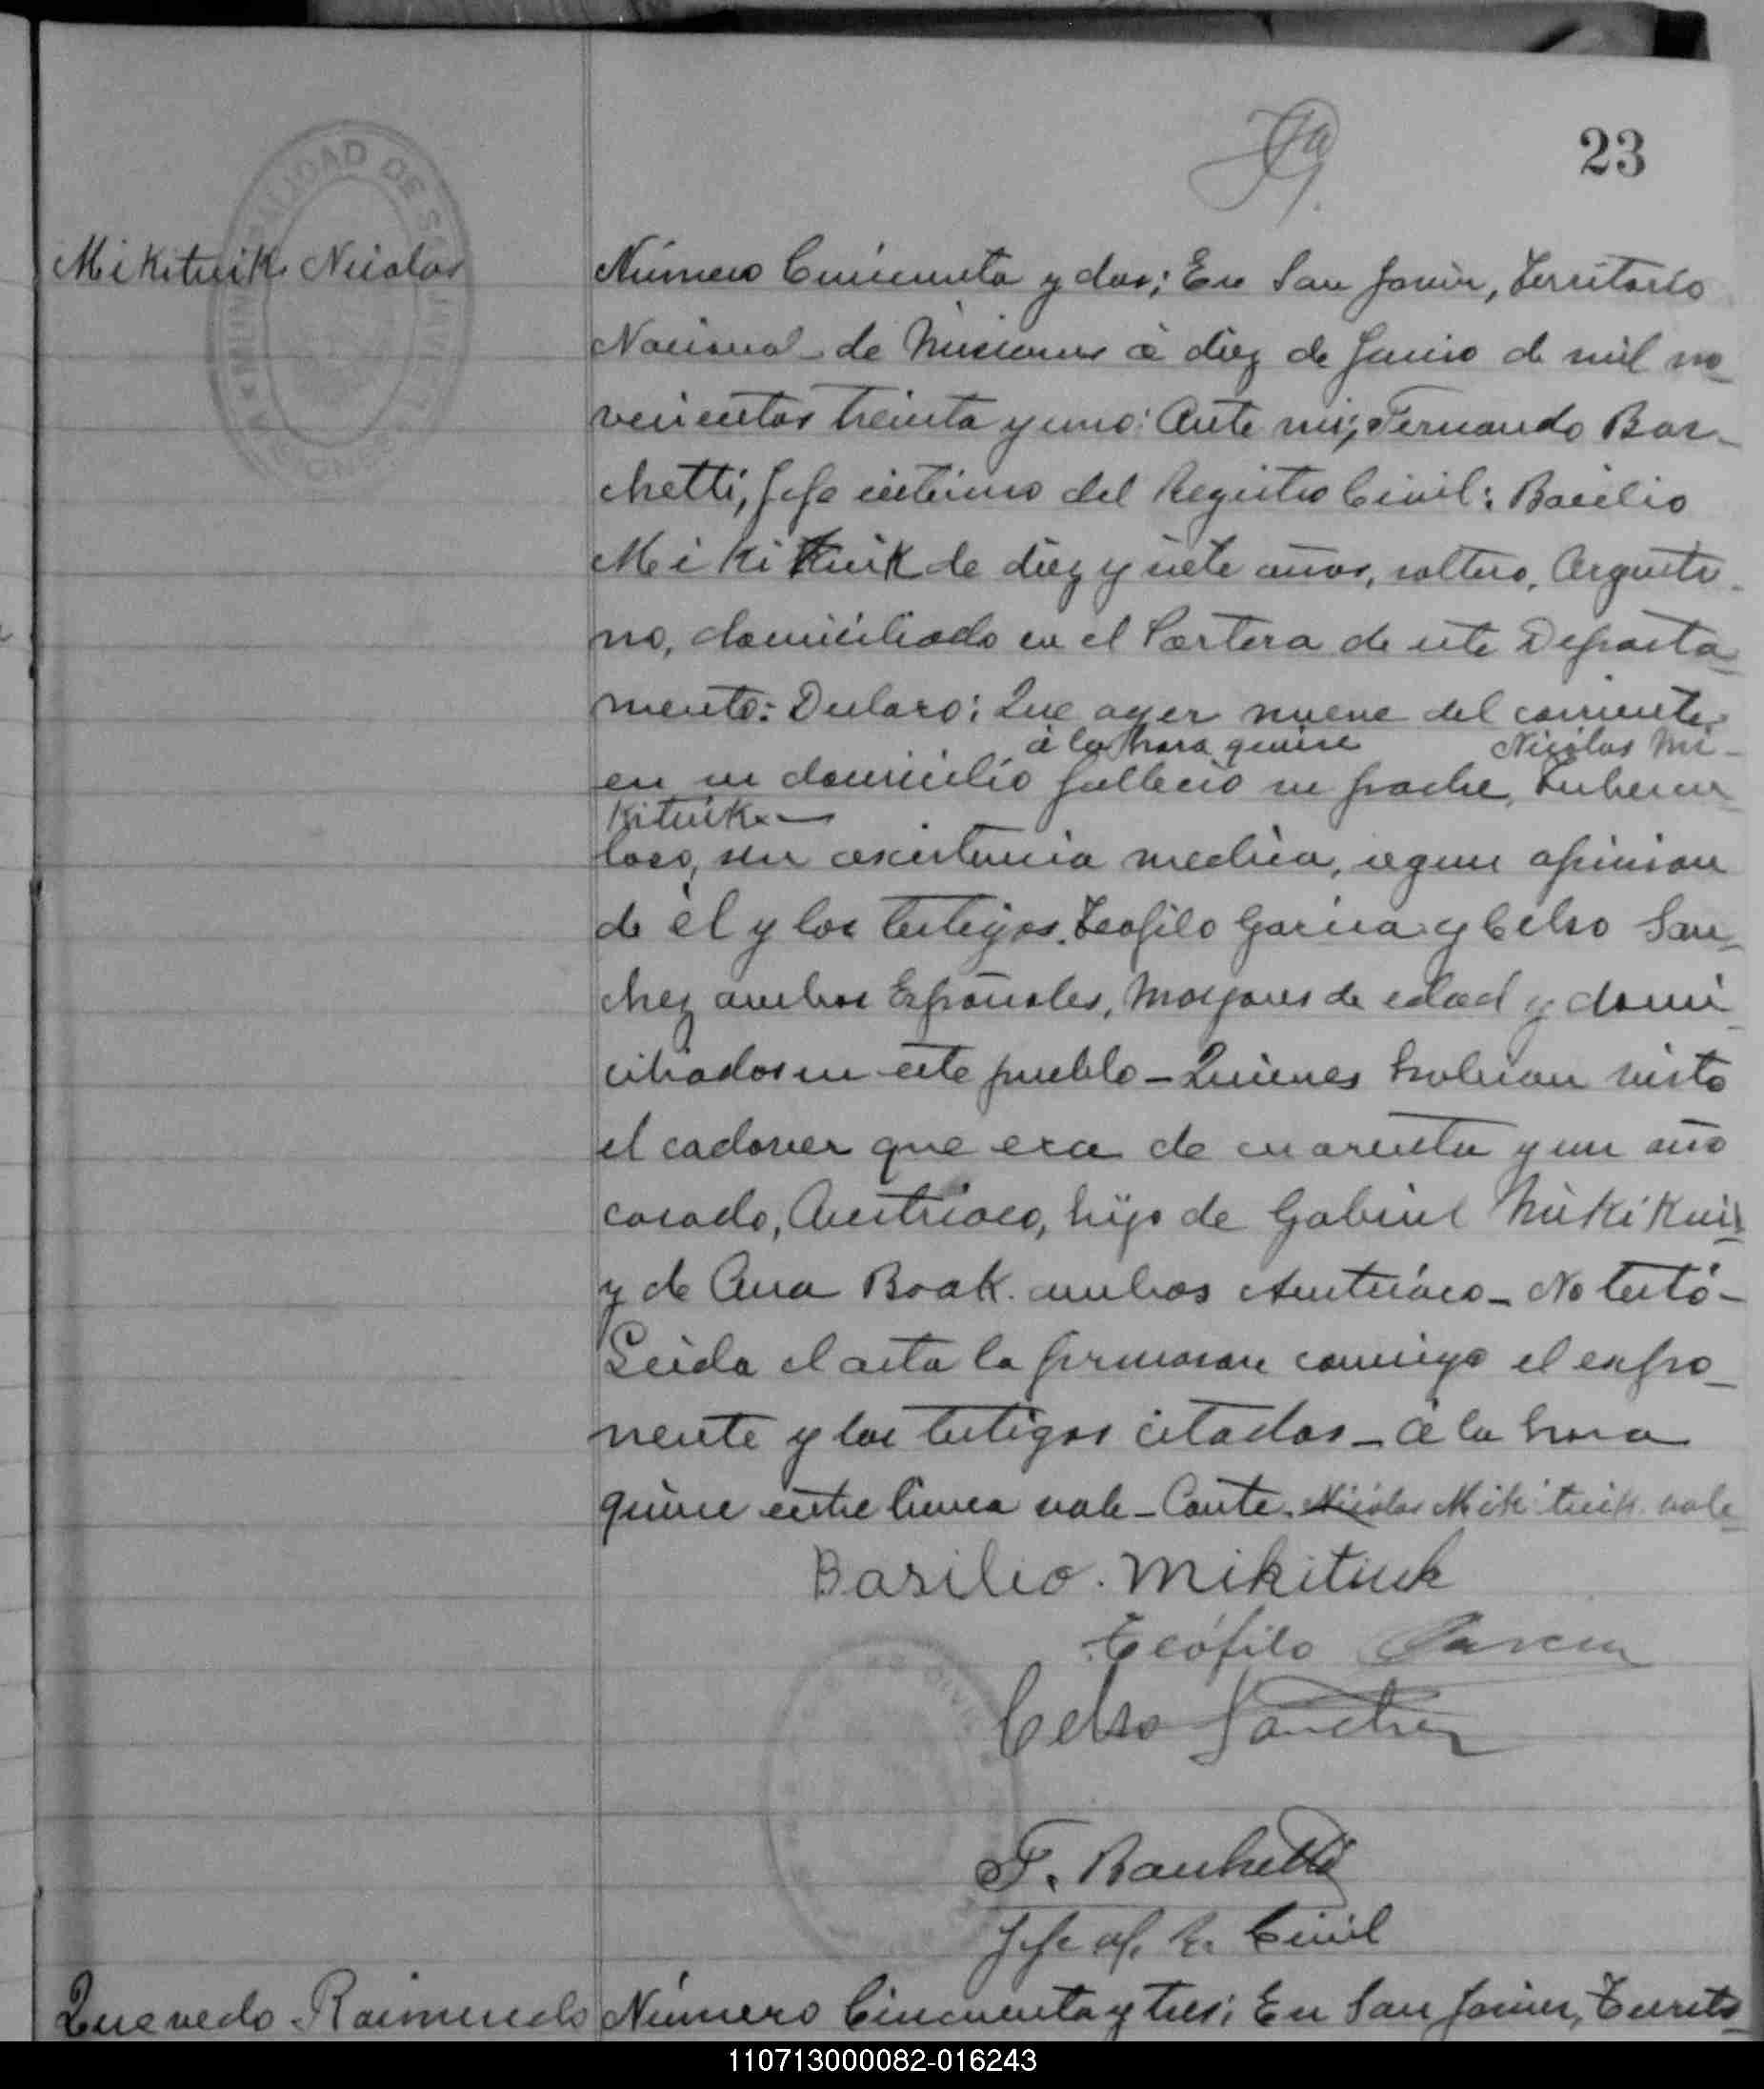 23
MUNICIPALIDAD DE S. JAVIER
MISIONES
Mikituik Nicolas
Número Cincuenta y dos; En San Javier, Territorio
Nacional de Misiones á diez de Junio de mil no_
vecientos treinta y uno: Ante mi; Fernando Ban_
chetti, Jefe interino del Registro Civil: Basilio
Mikituik de diez y siete años, soltero, Argenti_
no, domiciliado en el Portera de este Departa_
mento: Declaro: Que ayer nueve del corriente
á la hora quince Nicolas Mi_
en su domicilio fallecio su padre, tubercu_
kituik
loso, sin asistencia medica, segun opinion
de él y los testigos. Teofilo Garcia y Celso San_
chez ambos Españoles, Mayores de edad y domi_
ciliados en este pueblo _ Quienes habian visto
el cadaver que era de cuarenta y un año
casado, Austriaco, hijo de Gabriel Mikikuik
y de Ana Boak. ambos Austriaco _ No testó _
Leida el acta la firmaron conmigo el expo_
nente y los testigos citados _ á la hora
quince entre linea vale _ Conste. Nicolas Mikituik. vale_
Basilio. Mikitiuk
Teófilo Garcia
Celso Sanchez
F. Banchetti
Jefe R. Civil
Quevedo Raimundo
Número Cincuenta y tres; En San Javier, Territo_
110713000082-016243